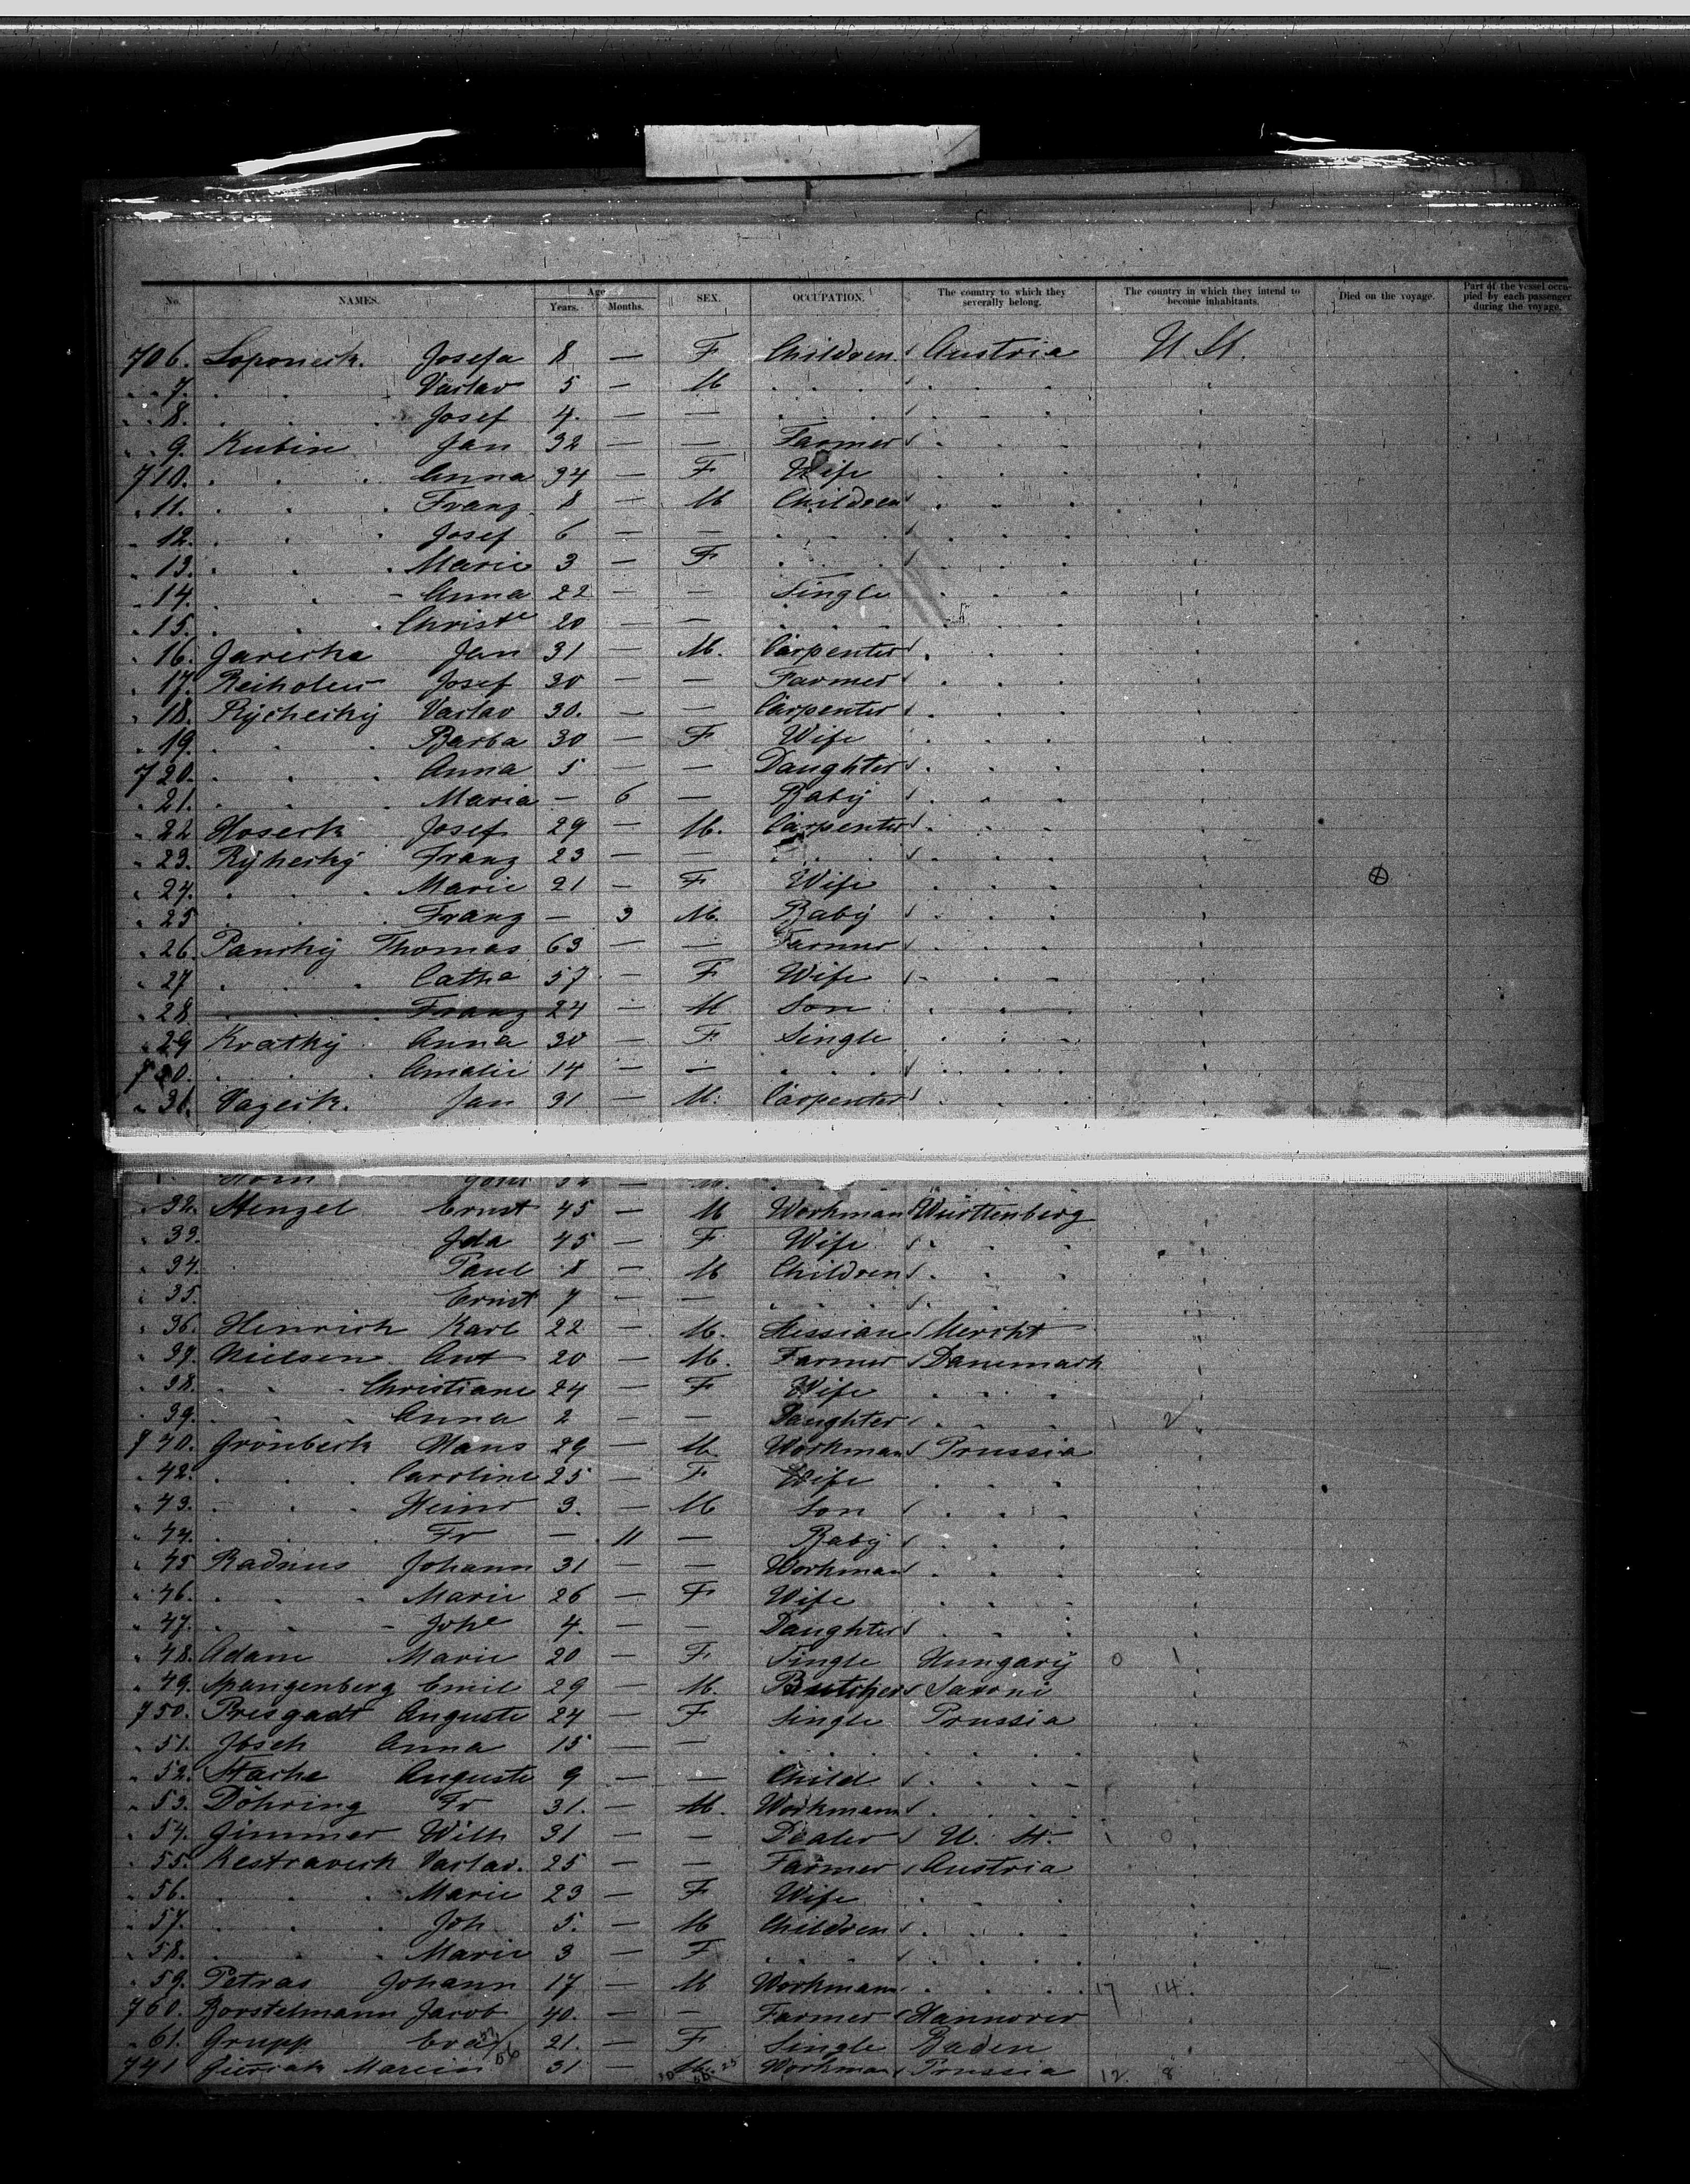 No. NAMES. Age Years. Months. SEX. OCCUPATION. The country to which they severally belong. The country in which they intend to become inhabitants. Died on the voyage. Part of the vessel occupied by each passenger during the voyage.
706. Josefa 8 — F Children Austria U. St.
" 7. . . Vaclav 5 — M . . . .
" 8. . . Josef 4. — — . . . .
" 9. Kubin Jan 32 — — Farmer . . .
710. . . . Anna 34 — F Wife . . .
" 11. . . . Franz 8 — M Children . . .
" 12. . . . Josef 6 — — . . . .
" 13. . . . Marie 3 — F . . . .
" 14. . . - Anna 22 — — Single . . .
" 15. . . . Christe 20 — — . . . .
" 16. Jan 31 — M. Carpenter . . .
" 17. Josef 30 — — Farmer . . .
" 18. Vaclav 30. — — Carpenter . . .
" 19. . . . Barba 30 — F Wife . . .
720. . . . Anna 5 — — Daughter . . .
" 21. . . . Maria — 6 — Baby . . .
" 22 Josef 29 — M. Carpenter . . .
" 23. Franz 23 — — . . . .
" 24. . . . Marie 21 — F Wife . . .
" 25 . . . Franz — 3 M. Baby . . .
" 26 Thomas 63 — — Farmer . . .
" 27 . . . Cathe 57 — F Wife . . .
" 28 . . . Franz 24 — M Son . . .
" 29 Kratky Anna 30 — F Single . . .
730. . . . Amalie 14 — — . . . .
" 31. Jan 31 — M. Carpenter . . .
" 32. Menzel Ernst 45 — M Workman Württenberg
" 33. Ida 45 — F Wife . . .
" 34. Paul 8 — M Children . . .
" 35. Ernst 7 — — . . . .
" 36. Heinrich Karl 22 — M. Hessian Mercht
" 37. Nielsen Ant 20 — M. Farmer Danemark
" 38. . . . Christiane 24 — F Wife . . .
" 39. . . . Anna 2 — — Daughter . . . 1 2
740. Grönbeck Hans 29 — M. Workman Prussia
" 42. . . . Caroline 25 — F Wife . . .
" 43. . . . Heinr 3. — M Son . . .
" 44. . . . Fr — 11 — Baby . . .
" 45 Johann 31 — — Workman . . .
" 46. . . . Marie 26 — F Wife . . .
" 47. . . - Johe 4. — — Daughter . . .
" 48. Adam Marie 20 — F Single Hungary 0 1
" 49. Spangenberg Emil 29 — M. Butcher Saxoni
750. Auguste 24 — F Single Prussia
" 51. Anna 15 — — . . . .
" 52. Auguste 9 — — Child . . .
" 53. Döhring Fr 31. — M. Workman . . .
" 54. Gimmer Wilh 31 — — Dealer U. St. 1 0
" 55. Vaclav. 25 — — Farmer Austria
" 56. . . . Marie 23 — F Wife . . .
" 57. . . . Joh 5. — M Children . . .
" 58. . . . Marie 3 — F . . . .
" 59. Petras Johann 17 — M Workman . . . 17 14
760. Borstelmann Jacob 40. — — Farmer Hannover
" 61. Grupp Eva 21. — F Single Baden
741 Marcin 31 — M. Workman Prussia 12 8